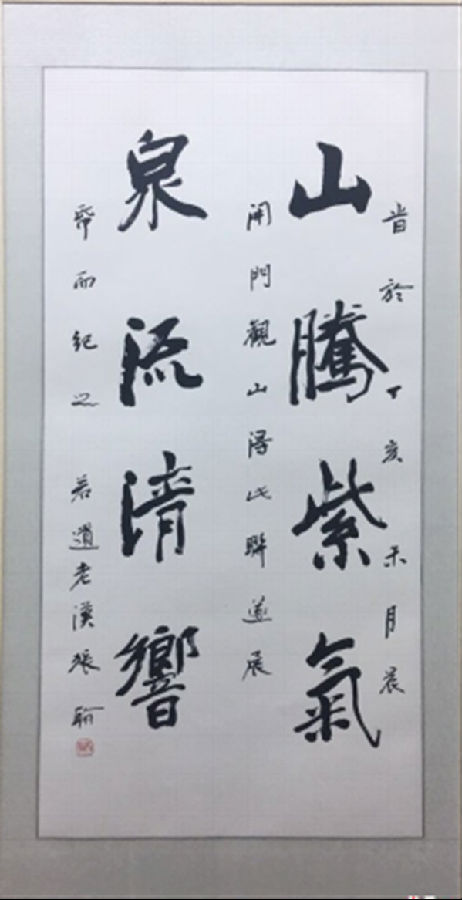 旹於丁亥禾月晨
山騰紫氣
開門觀山得此聯遂展
泉流清響
帋而紀之 若遁老漢張